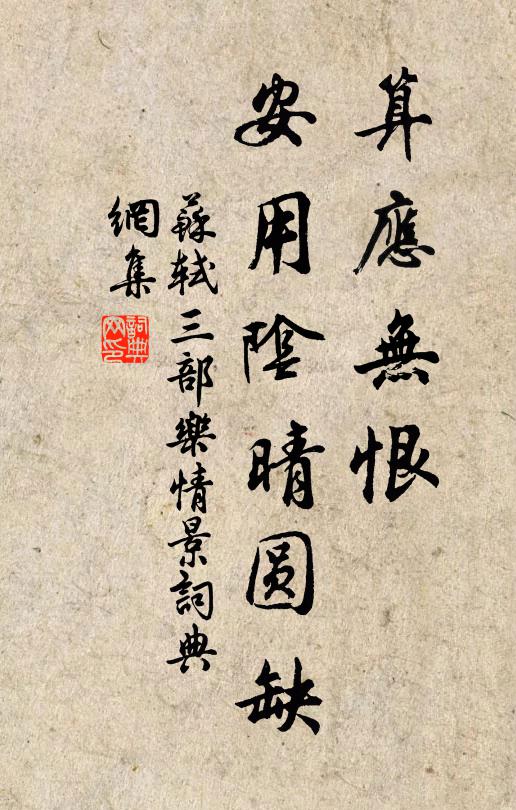 算應無恨
安用陰晴圆缺
蘇軾三部樂情景詞典
網集
詞典
网印